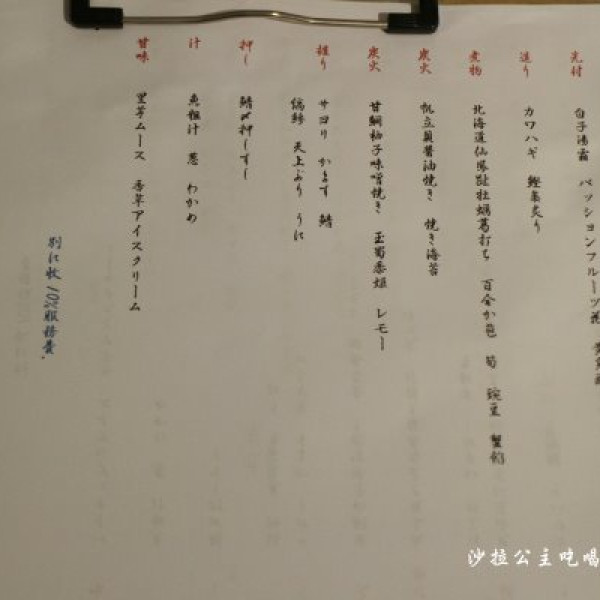 先付
白子湯霜 パッションフルーツ
造り
カワハギ 鰹藁炙り
煮物
北海道仙鳳趾牡蠣葛打ち 百合か芭 筍 豌豆 蟹餡
炭火
帆立貝醬油焼き 焼き海苔
炭火
甘鯛柚子味噌焼き 玉蜀黍姫 レモー
握り
サヨリ かます 鯖
縞鰺 天上ぶり うに
押し
鯖〆押しずし
汁
魚粗汁 葱 わかめ
甘味
里芋ムース 香草アイスクリーム
別に收10%服務費.
沙拉公主吃喝